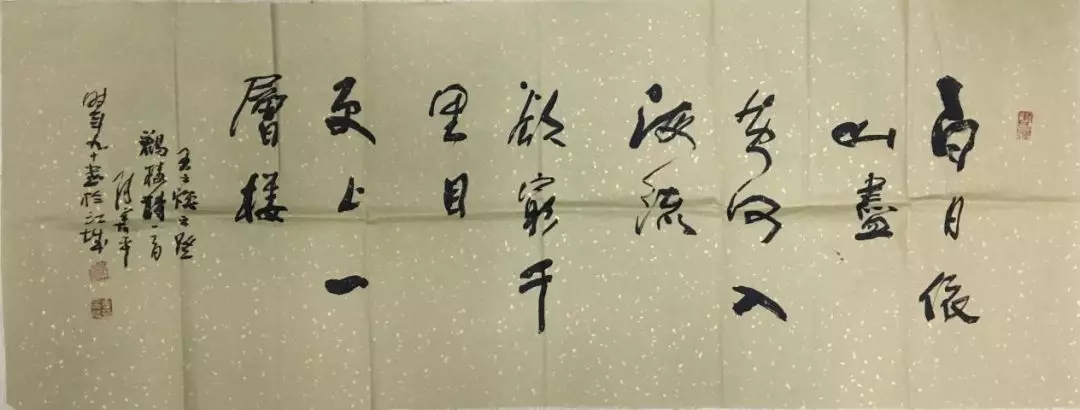 白日依
山盡
黄河入
海流
欲窮千
里目
更上一
層楼
王之焕之登
鸛楼詩一首
平
时年九十書於江城